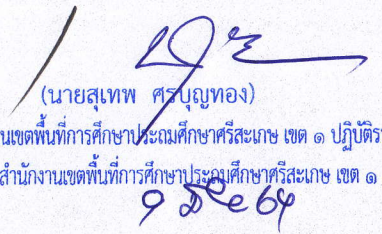 (นายสุเทพ ศรบุญทอง)
นเขตพื้นที่การศึกษาประถมศึกษาศรีสะเกษ เขต ๑ ปฏิบัติรา
สำนักงานเขตพื้นที่การศึกษาประถมศึกษาศรีสะเกษ เขต ๑
64